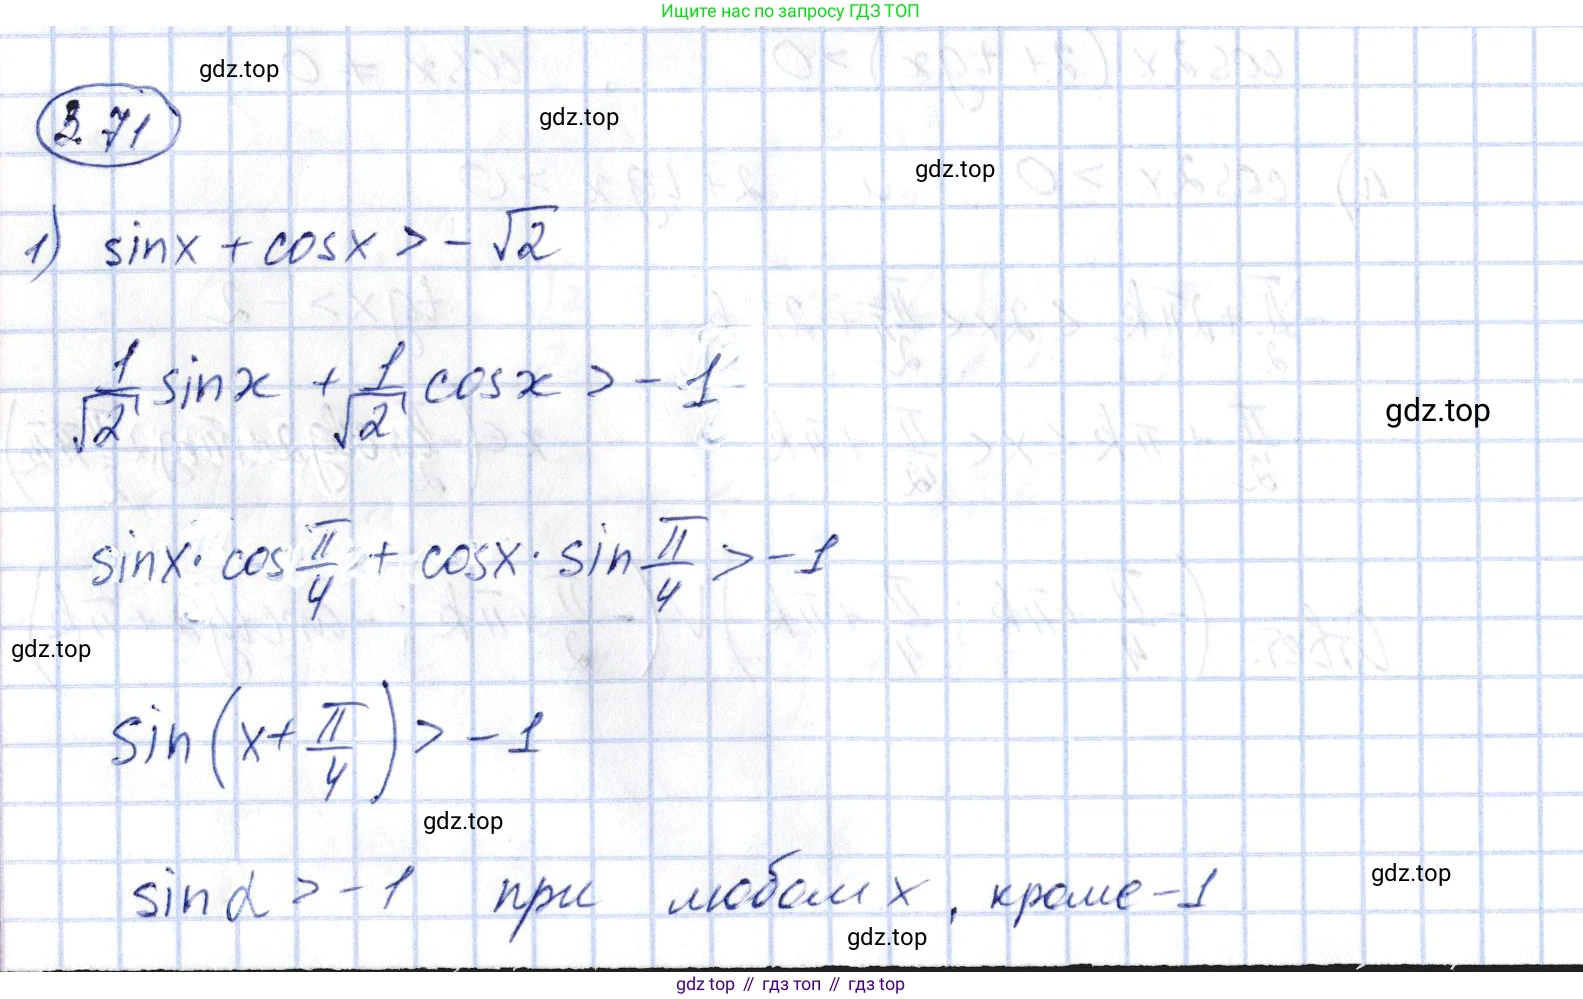 Ищите нас по запросу ГДЗ ТОП
gdz.top
371
gdz.top
gdz.top
1) sinx + cosx > - √2
1/√2 sinx + 1/√2 cosx > - 1
gdz.top
sinx · cos π/4 + cosx · sin π/4 > - 1
gdz.top
sin(x + π/4) > - 1
gdz.top
sin α > - 1 при любом x, кроме -1
gdz.top
gdz.top
gdz top // гдз топ // gdz top